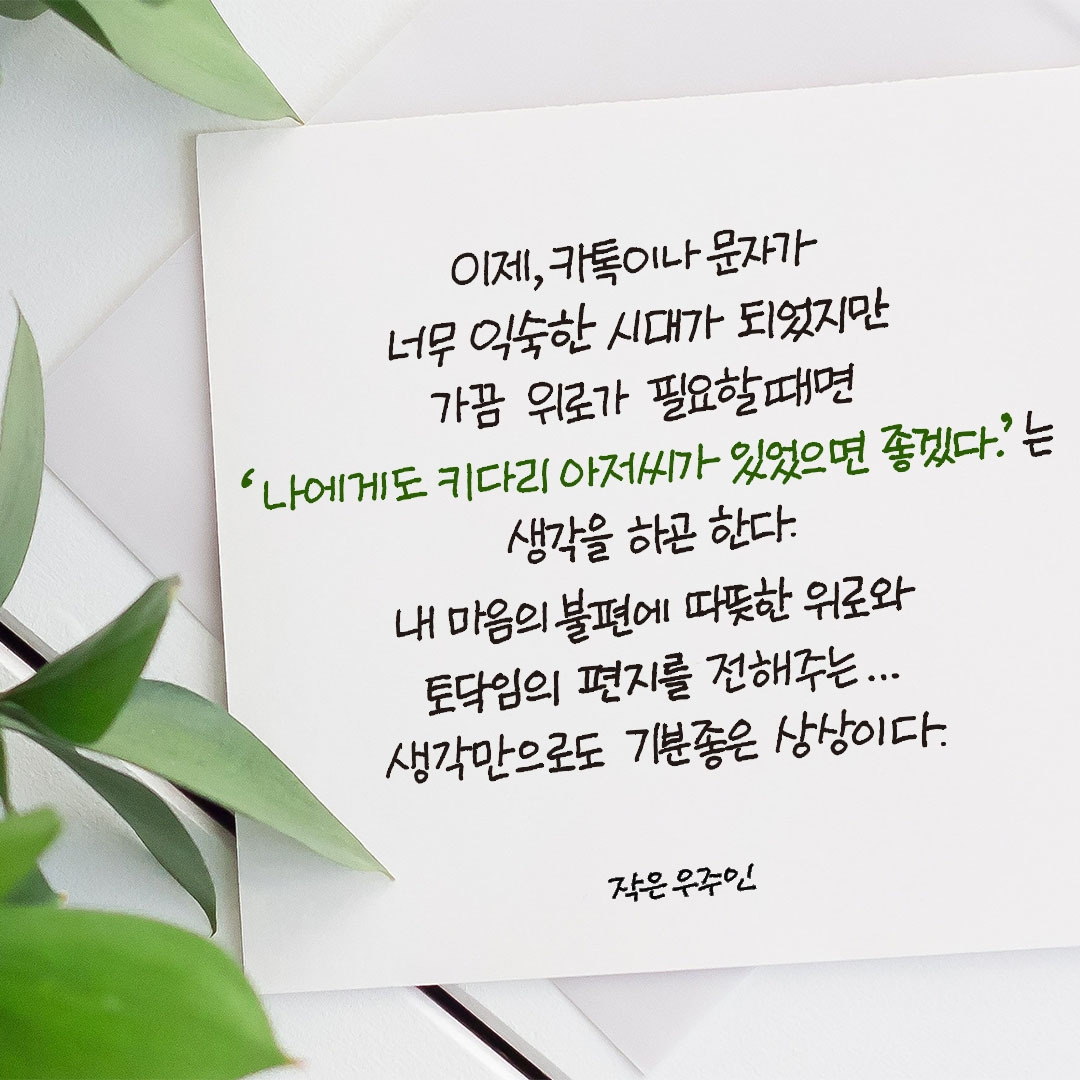 이제, 카톡이나 문자가
너무 익숙한 시대가 되었지만
가끔 위로가 필요할때면
‘나에게도 키다리 아저씨가 있었으면 좋겠다.’는
생각을 하곤 한다.
내 마음의 불편에 따뜻한 위로와
토닥임의 편지를 전해주는...
생각만으로도 기분좋은 상상이다.
작은우주인